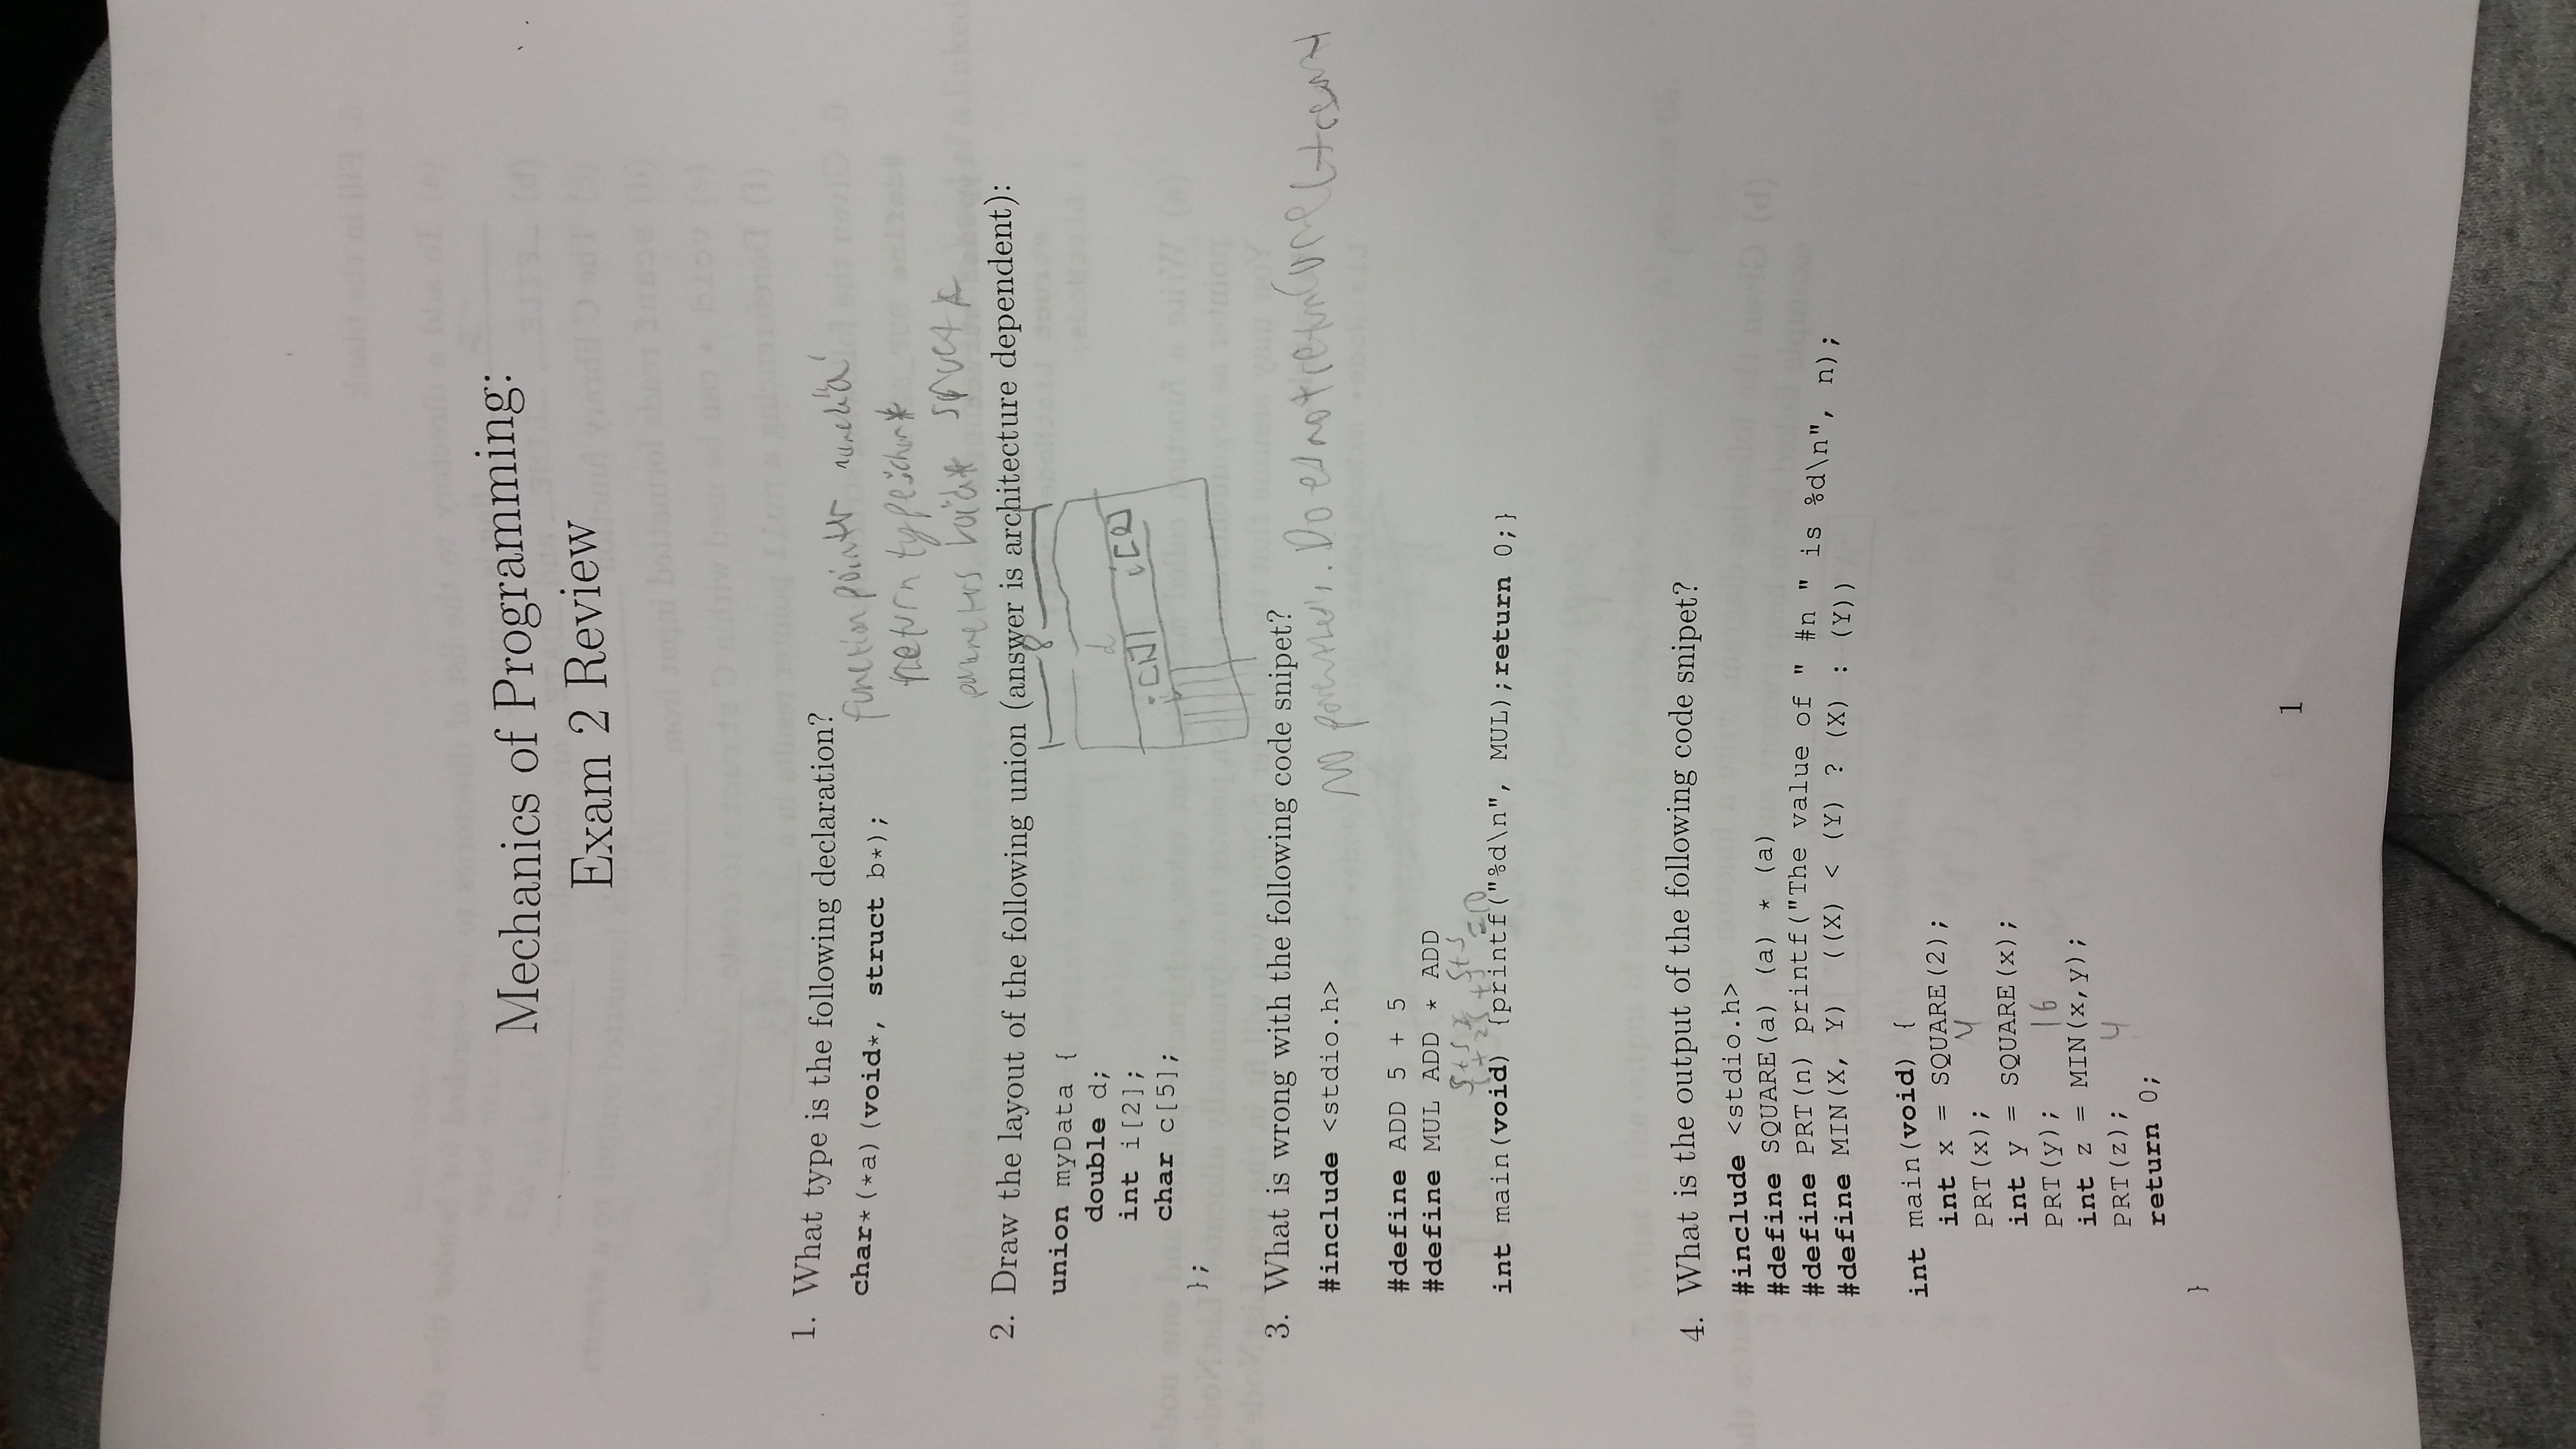 Mechanics of Programming:
Exam 2 Review
1. What type is the following declaration?
char*(*a)(void*, struct b*);
function pointer named 'a'
return type: char*
parameters void* struct *
2. Draw the layout of the following union (answer is architecture dependent):
union myData {
double d;
int i[2];
char c[5];
};
8
d
3. What is wrong with the following code snipet?
No Does not return
#include <stdio.h>
#define ADD 5 + 5
#define MUL ADD * ADD
5+5 * 5+5
int main(void) {printf("%d\n", MUL);return 0;}
4. What is the output of the following code snipet?
#include <stdio.h>
#define SQUARE(a) (a) * (a)
#define PRT(n) printf("The value of " #n " is %d\n", n);
#define MIN(X, Y) ((X) < (Y) ? (X) : (Y))
int main(void) {
int x = SQUARE(2);
PRT(x); 4
int y = SQUARE(x);
PRT(y); 16
int z = MIN(x,y);
PRT(z); 4
return 0;
}
1